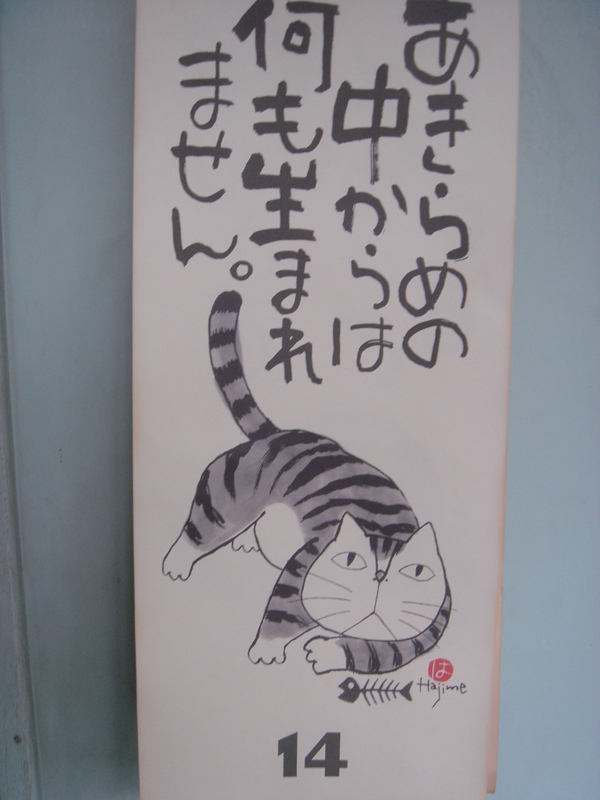 あきらめの
中からは
何も生まれ
ません。
は
Hajime
14